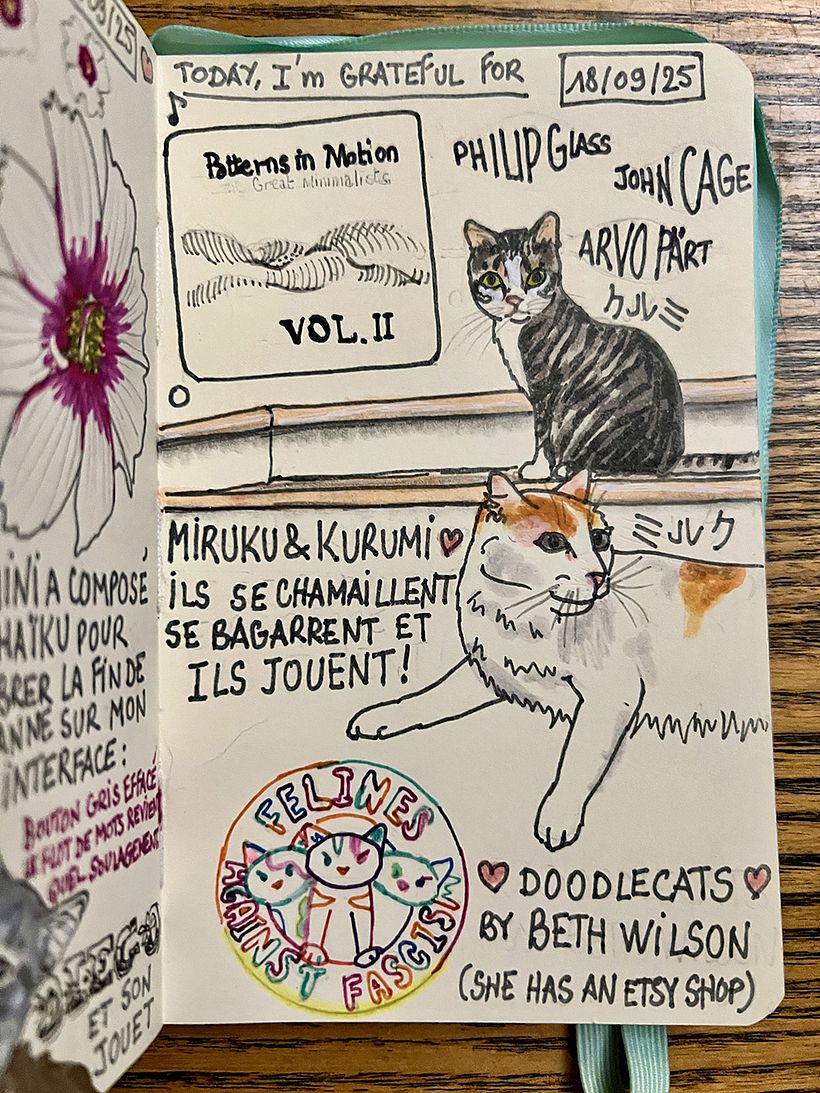 09/25
A COMPOSÉ
HAÏKU POUR
LA FIN DE
SUR MON
INTERFACE :
BOUTON GRIS EFFACÉ
LE FLOT DE MOTS REVIENT
QUEL SOULAGEMENT
ET SON
JOUET
TODAY, I'm GRATEFUL FOR
18/09/25
Patterns in Motion
The Great Minimalists
VOL. II
PHILIP GLASS
JOHN CAGE
ARVO PÄRT
クルミ
MIRUKU & KURUMI
ミルク
ILS SE CHAMAILLENT
SE BAGARRENT ET
ILS JOUENT !
FELINES
AGAINST FASCISM
DOODLECATS
BY BETH WILSON
(SHE HAS AN ETSY SHOP)